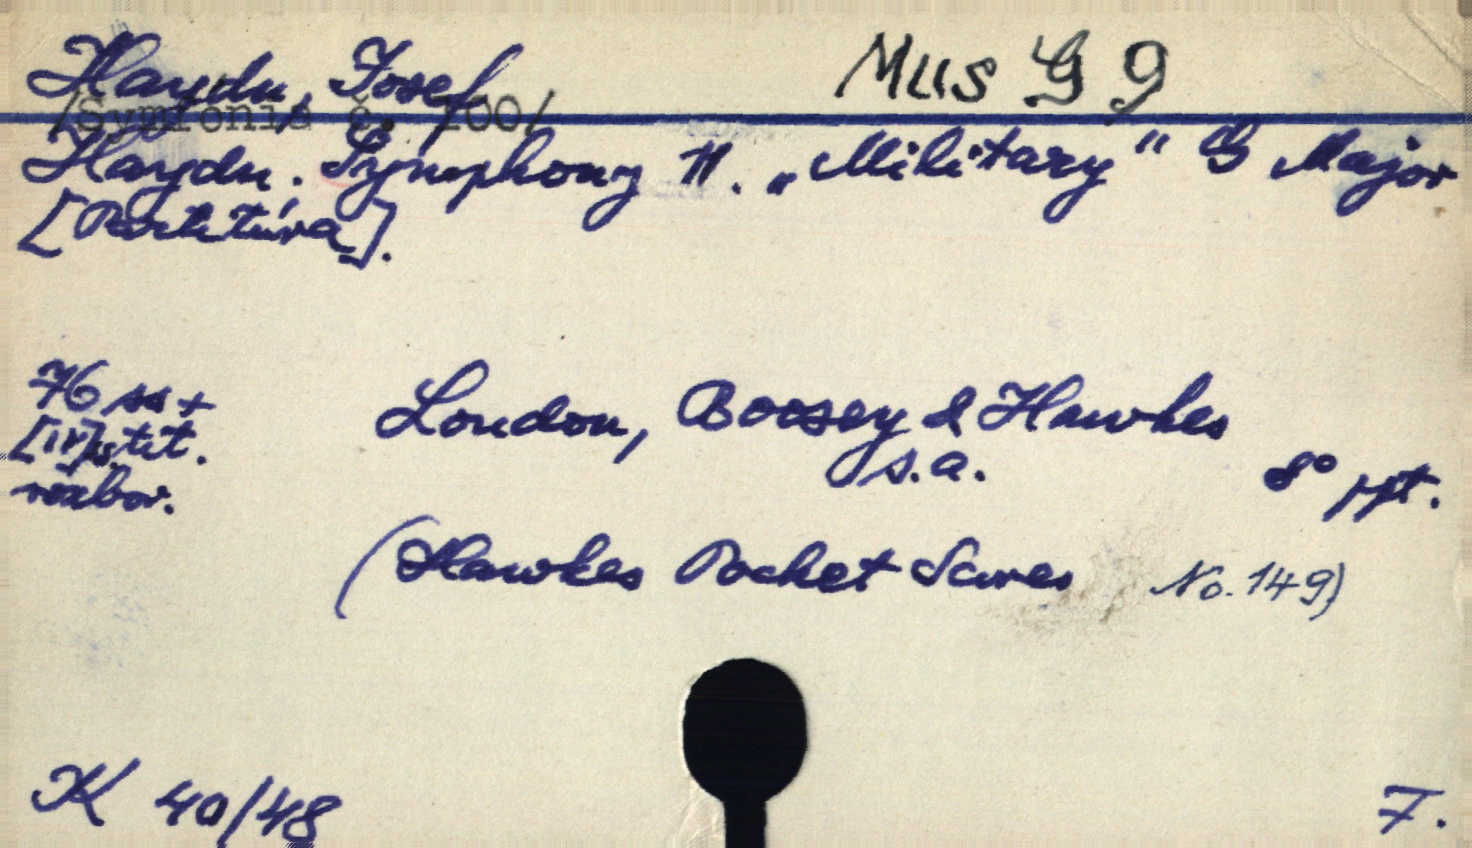 Haydn, Josef
Mus G 9
/Symfonie č. 100/
Haydn. Symphony 11. „Military" G Major
[Partitura].
76 ss +
[iv]s. tit.
rozbor.
London, Boosey & Hawkes
s.a.
8° ppt.
(Hawkes Pocket Scores No. 149)
K 40/48
F.